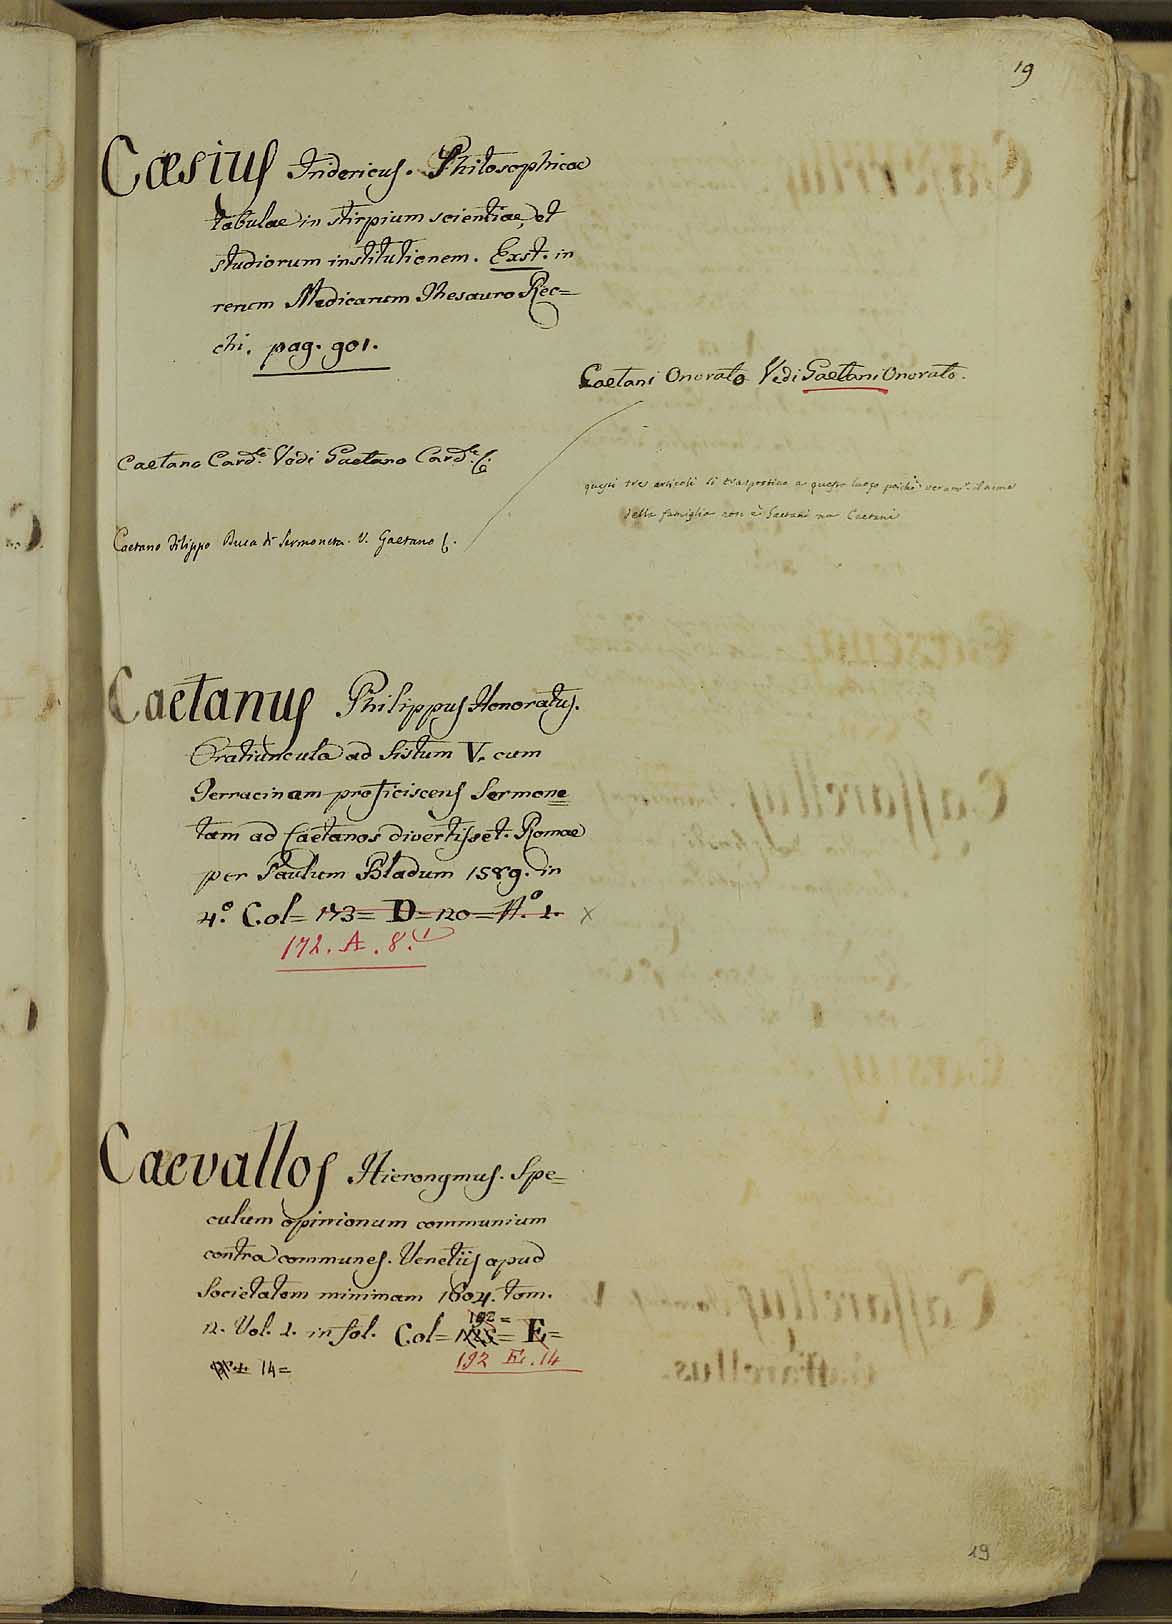 19
Cæsius Indericus. Philosophicae
tabulae in stirpium scientiae, et
studiorum institutionem. Exst. in
rerum Medicarum Thesauro Rec=
chi. pag. 901.
Caetani Onorato Vedi Gaetani Onorato.
Caetano Card.le Vedi Gaetano Card.le C.
questi tre articoli si trasportino a questo luogo poichè veram.e il nome
della famiglia non è Gaetani ma Caetani
Caetano Filippo Duca di Sermoneta. V. Gaetano C.
Caetanus Philippus Honoratus.
Oratiuncula ad Sistum V. cum
Terracinam proficiscens Sermone=
tam ad Caetanos divertisset. Romae
per Paulum Bladum 1589. in
4.º Col= 173= D= 120= N.º 1. X
172. A. 8.1
Caevallos Hieronymus. Spe=
culum opinionum communium
contra communes. Venetiis apud
Societatem minimam 1604. tom.
2. Vol. 1. in fol. Col= 192= E=
14=
192 E. 14
19